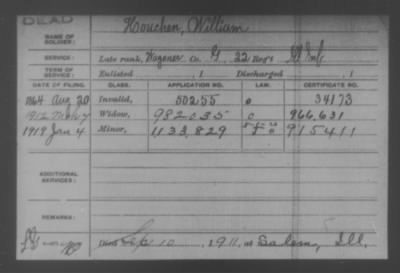 DEAD
NAME OF SOLDIER: Houchen, William
SERVICE: Late rank, Wagoner Co. G, 22 Reg't Ill Inf
TERM OF SERVICE: Enlisted , 1 Discharged , 1
DATE OF FILING. CLASS. APPLICATION NO. LAW. CERTIFICATE NO.
1864 Aug 20 Invalid, 50255 0 34173
1912 Widow, 982035 0 966,631
1919 Jan 4 Minor, 1133,829 915411
ADDITIONAL SERVICES:
REMARKS:
Died Sep 10, 1911, at Salem, Ill.